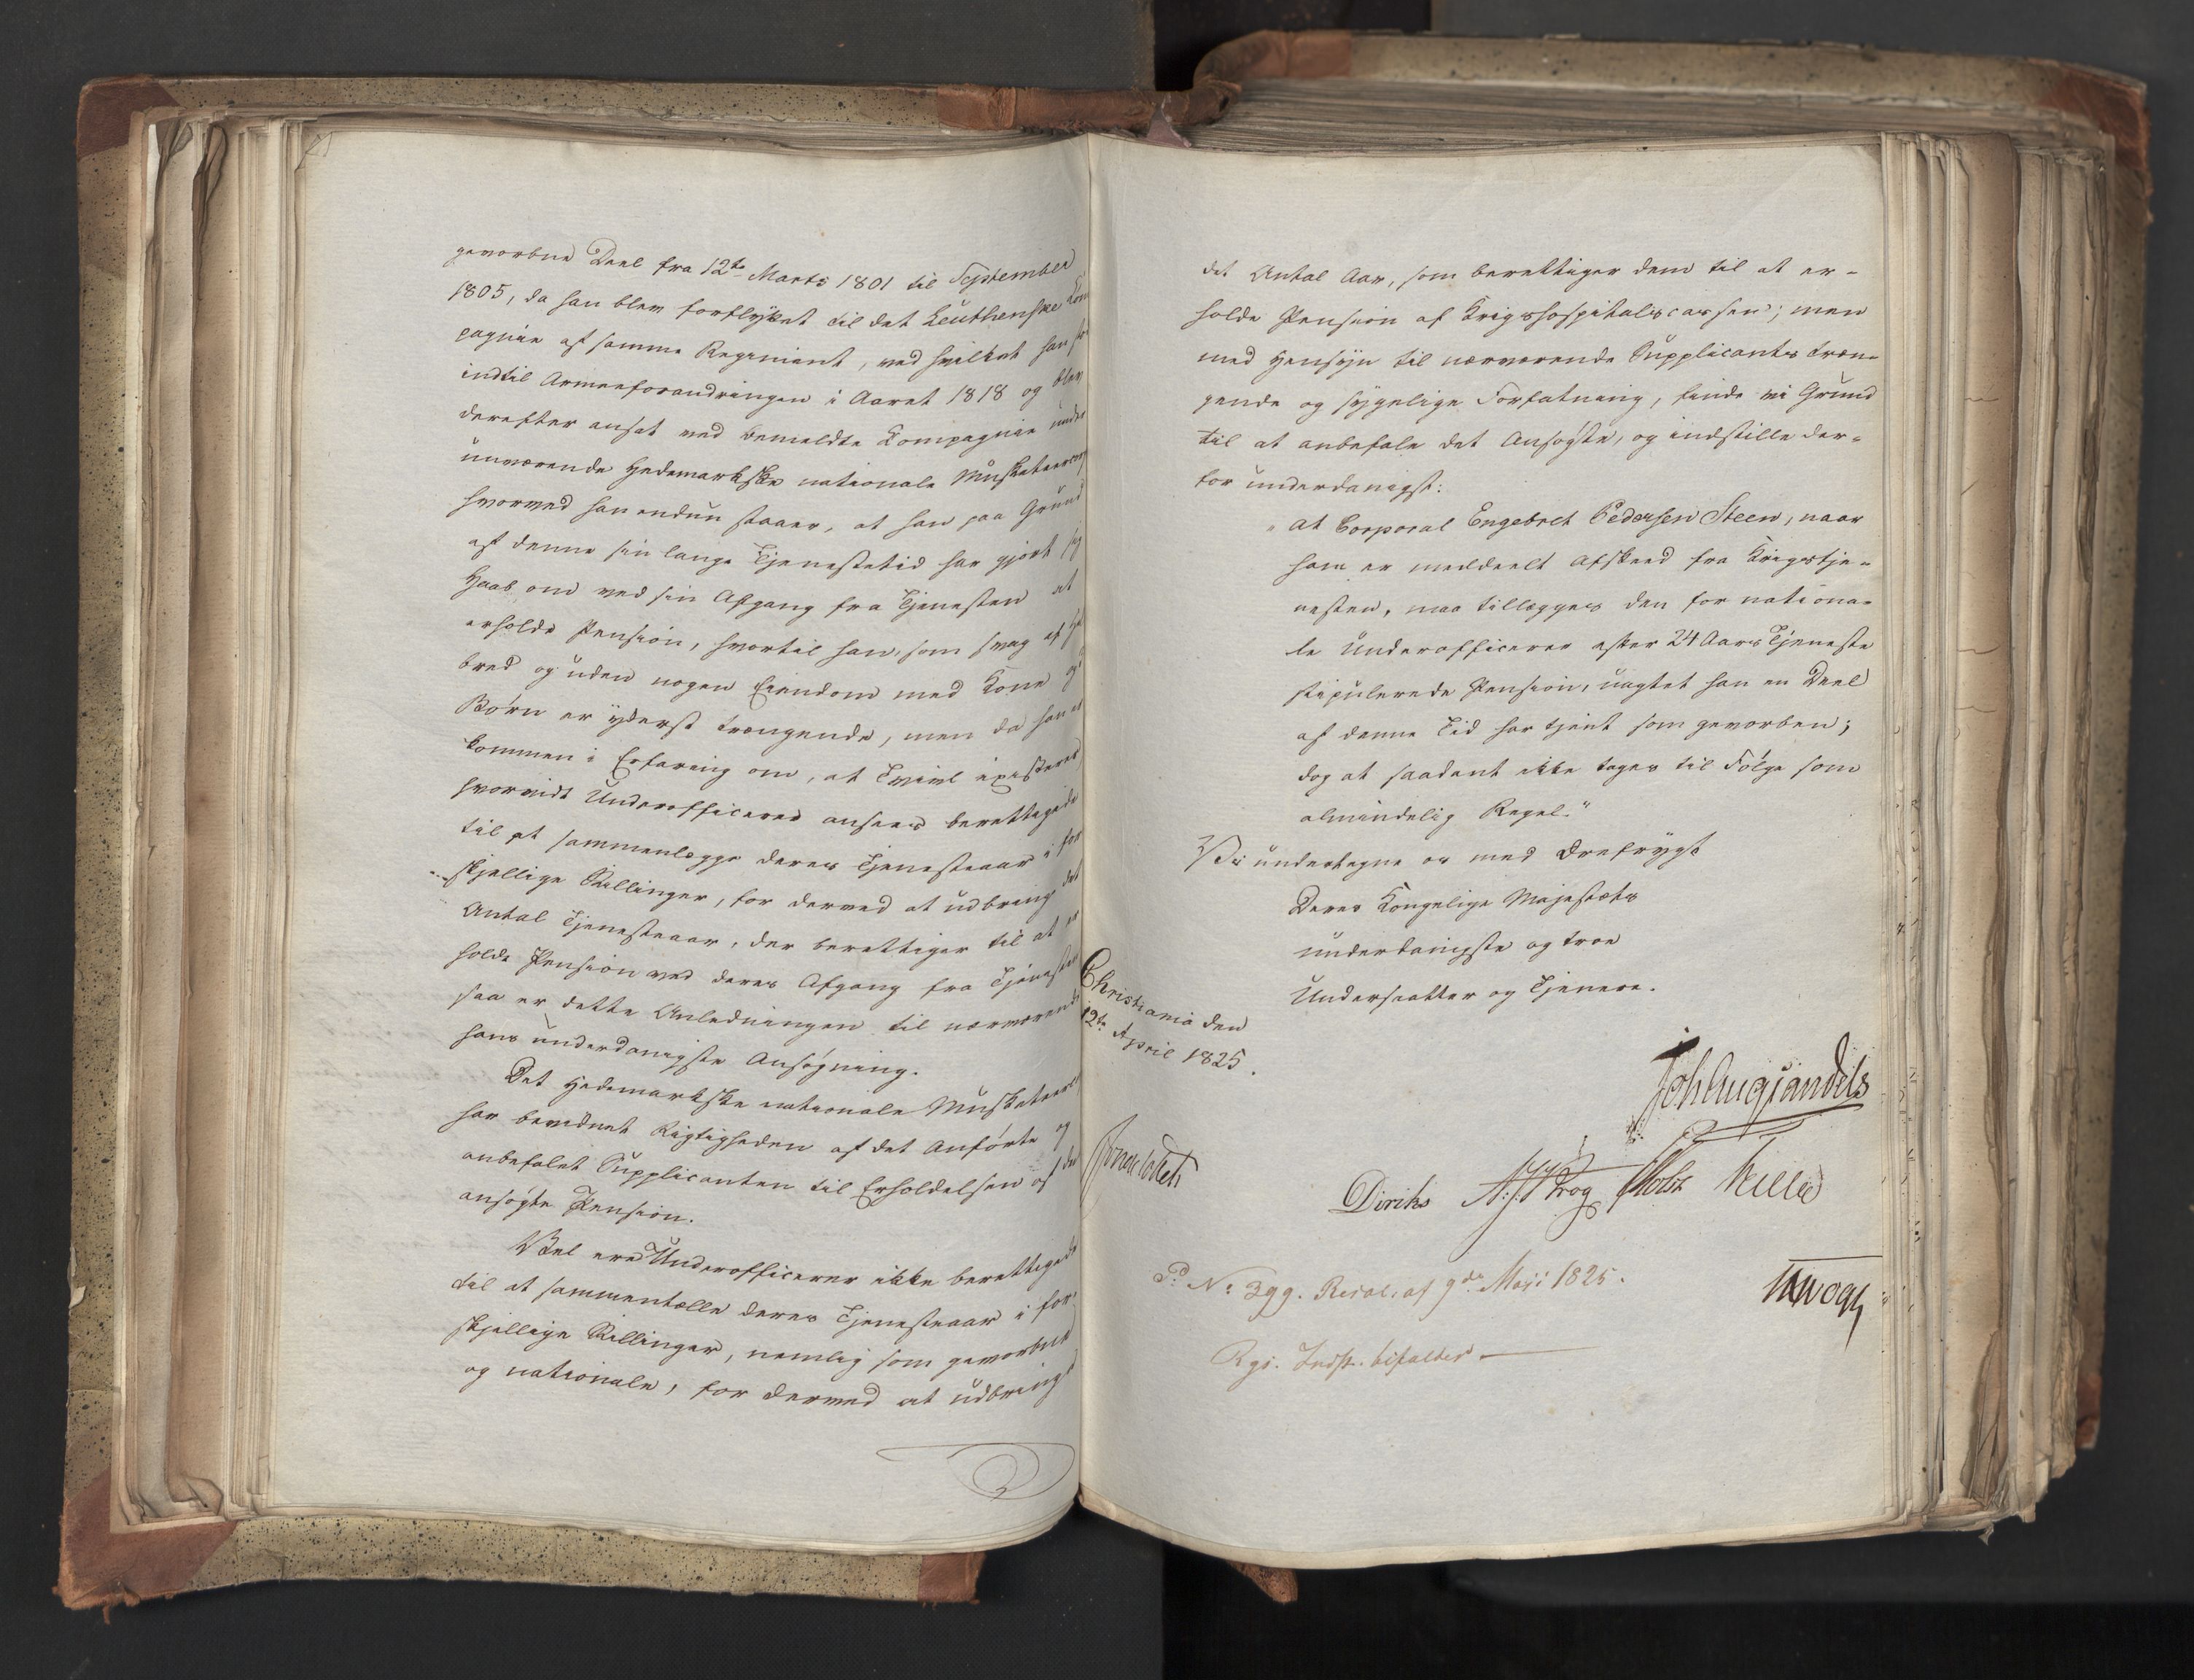 gevorbne Deel fra 12te Marts 1801 til September
1805, da han blev forflyttet til det Leuthenske Kom
pagnie af samme Regiment, ved hvilket han
indtil Armeeforandringen i Aaret 1818 og blev
derefter ansat ved bemeldte Kompagnie under
nuværende Hedemarkske nationale Musketeercorps
hvorved han endnu staaer, at han paa Grund
af denne sin lange Tjenestetid har gjort sig
Haab om ved sin Afgang fra Tjenesten at
erholde Pension, hvortil han, som svag af Hel
bred og uden nogen Eiendom med Kone og
Børn er yderst trængende, men da han er
kommen i Erfaring om, at Tvivl existerer
hvorvidt Underofficerer ansees berettigede
til at sammenlægge deres Tjenesteaar i for
skjellige Stillinger, for derved at udbringe det
Antal Tjenesteaar, der berettiger til at er
holde Pension ved deres Afgang fra Tjenesten
saa er dette Anledningen til nærværende
hans underdanigste Ansøgning.
Det Hedemarkske nationale Musketeercorps
har bevidnet Rigtigheden af det Anførte og
anbefalet Supplicanten til Erholdelsen af den
ansøgte Pension.
Vel ere Underofficerer ikke berettigede
til at sammentælle deres Tjenesteaar i for-
skjellige Stillinger, nemlig som gevorbne
og nationale, for derved at udbringe
det Antal Aar, som berettiger dem til at er-
holde Pension af Krigshospitalscassen; men
med Hensyn til nærværende Supplicants træn-
gende og sygelige Forfatning, finde vi Grund
til at anbefale det Ansøgte, og indstille der-
for underdanigst:
"at Corporal Engebret Pedersen Steen, naar
ham er meddeelt Afskeed fra Krigstje-
nesten, maa tillægges den for nationa-
le Underofficerer efter 24 Aars Tjeneste
stipulerede Pension, uagtet han en Deel
af denne Tid har tjent som gevorben;
dog at saadant ikke tages til Følge som
almindelig Regel."
Vi undertegne os med Ærefrygt
Deres Kongelige Majestæts
underdanigste og troe
Undersaatter og Tjenere.
Christiania den
12te April 1825.
Joh Aug Sandels
Jonas Collett
Diriks A: J: Krog Holst
P: No 399. Resol. af 9de Maji 1825.
Rgs. Indst. bifaldes